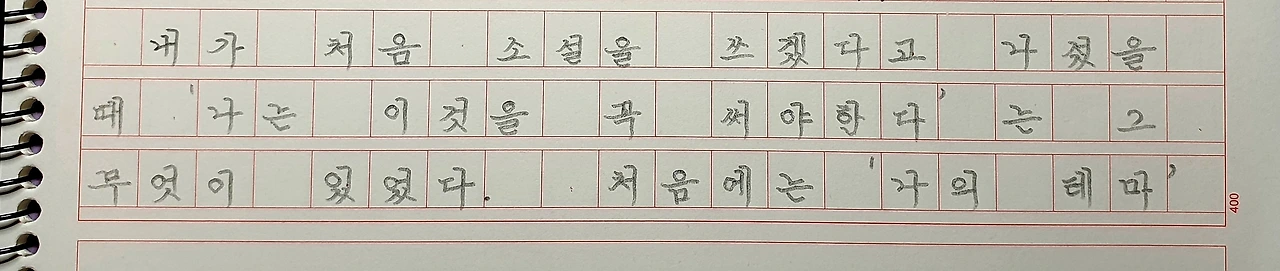 내가 처음 소설을 쓰겠다고 나섰을
때 '나는 이것을 꼭 써야한다' 는 그
무엇이 있었다. 처음에는 '나의 테마'
400